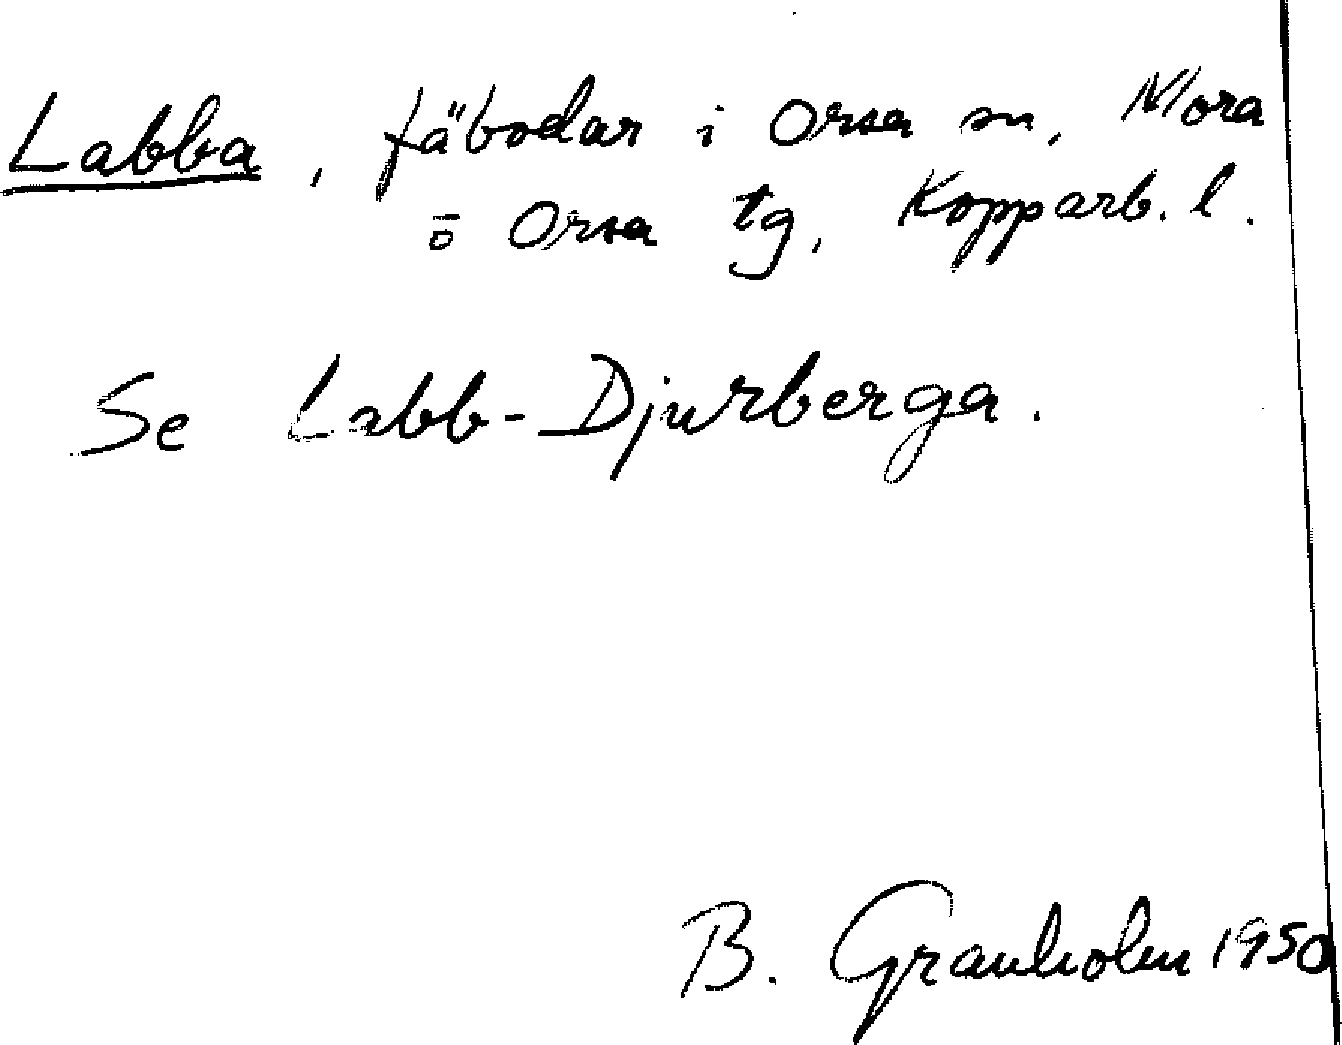 Labba, fäbodar i Orsa sn, Mora
o Orsa tg, Kopparb. l.
Se Labb-Djurberga.
B. Granholm 1950